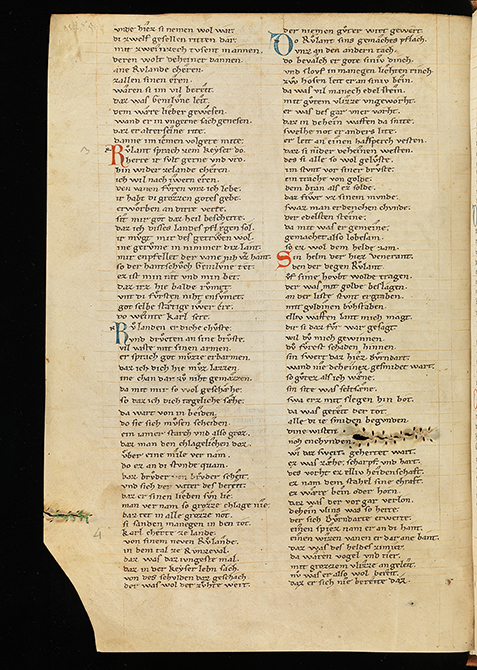 vnde hiez si nemen wol war.
di zwelf gesellen ritten dar.
mit zweinzech tusent mannen.
deren wolt deheiner dannen.
ane Rvlande cheren.
zallen sinen eren.
waren si im vil bereit.
daz was
wem ware lieber gewesen.
wand er in
daz er
danne im iemen volgete mite.
Rvlant sprach zem keyser do.
herre
hin wider
ich wil nach iwern eren.
von
ir habt di grozzen gotes gebe.
erworben an dirre verte.
sit mir got daz heil bescherte.
daz ich dises landes pflegen sol.
ir mvgt mir des getrwen wol.
ine gervme in nimmer diz lant.
mir enpfellet der vane
so der hantschvch
ez ist min rit und min bet.
daz irz hie balde rvmet.
vnt di fvrsten niht
got selbe stætige iwer ere.
do weinte karl sere.
Rvlanden er diche chvste.
vnd drvcten an sine brvste.
vil vaste mit sinen armen.
er sprach got mvzze erbarmen.
daz ich dich hie mvz lazzen.
ine chan
da mit mir so wol geschæhe.
so daz ich dich tægeliche sæhe.
da wart von in beiden.
do sie sich mvsen scheiden.
ein iamer starch vnd also groz.
daz man den chlagelichen doz.
vber eine mile ver nam.
do ez an di stvnde quam.
daz brvder von brvder schiet.
vnd sich der vater des beriet.
daz er sinen lieben svn lie.
man ver nam so grozze chlage nie.
daz tet in alle grozze not.
si sanden manegen in den tot.
karl cherte ze lande.
von sinem neven Rvlande.
in dem tal ze Runzeval.
daz was daz ivngeste mal.
daz in der keyser lebn sach.
von des schvlden daz geschach
der was wol der
der niemen gvter witt gewert.
Do Rvlant sins gemaches pflach.
vnz an den andern tach.
do bevalch er gote siniv dinch.
vnd slovf in manegen liehten rinch
zwo hosen leit er an siniv bein.
da was vil manech edel stein.
mit gvtem vlizze
er was des gar
daz in dehein waffen da snite.
swelhe not er anders lite.
er leit an einen halsperch vesten.
daz si nider deheinen westen.
des si alle so wol gelvste.
im stvnt vor siner brvste.
ein trache von golde.
dem bran als er solde.
daz fiwr vz sinem mvnde.
swaz man erdenchen chvnde.
der edelsten steine.
da mit was er gemeine.
gemachet also lobesam.
so ez wol dem helde zam.
Sin helm der hiez venerant.
den der degen Rvlant.
vf sime hovbt wolde tragen.
der was mit golde beslagen.
an der liste stvnt ergraben.
mit gvldinen bvhstaben.
elliv waffen lant mich magt.
dir si daz fvr war gesagt
wil dv mich gewinnen.
dv fvrest schaden hinnen.
sin swert daz hiez Dvrndart.
wand nie deheinez gesmidet wart.
so gvtez als ich wæne.
sin site was seltsæne.
swa erz mit slegen hin bot.
da was gereit der tot.
alle di ie smiden begvnden
dine wisten
noh enchvnden
wi daz swert geherret wart.
ez was zæhe. scharpf. vnd hart.
des vorht ez elliv heidenschaft.
ez nam dem stahel sine chraft.
ez wære bein oder horn.
daz was der vor gar verlorn.
dehein vlins was so herte.
der sich Dvrndarte erwerte.
einen spiez nam er an di hant.
einen wizen vanen er dar ane bant.
daz was des heldes zimier.
da waren vogel vnd tier.
mit grozzem vlizze angeleit.
nv was er also wol bereit.
daz er sich nie bereite baz.